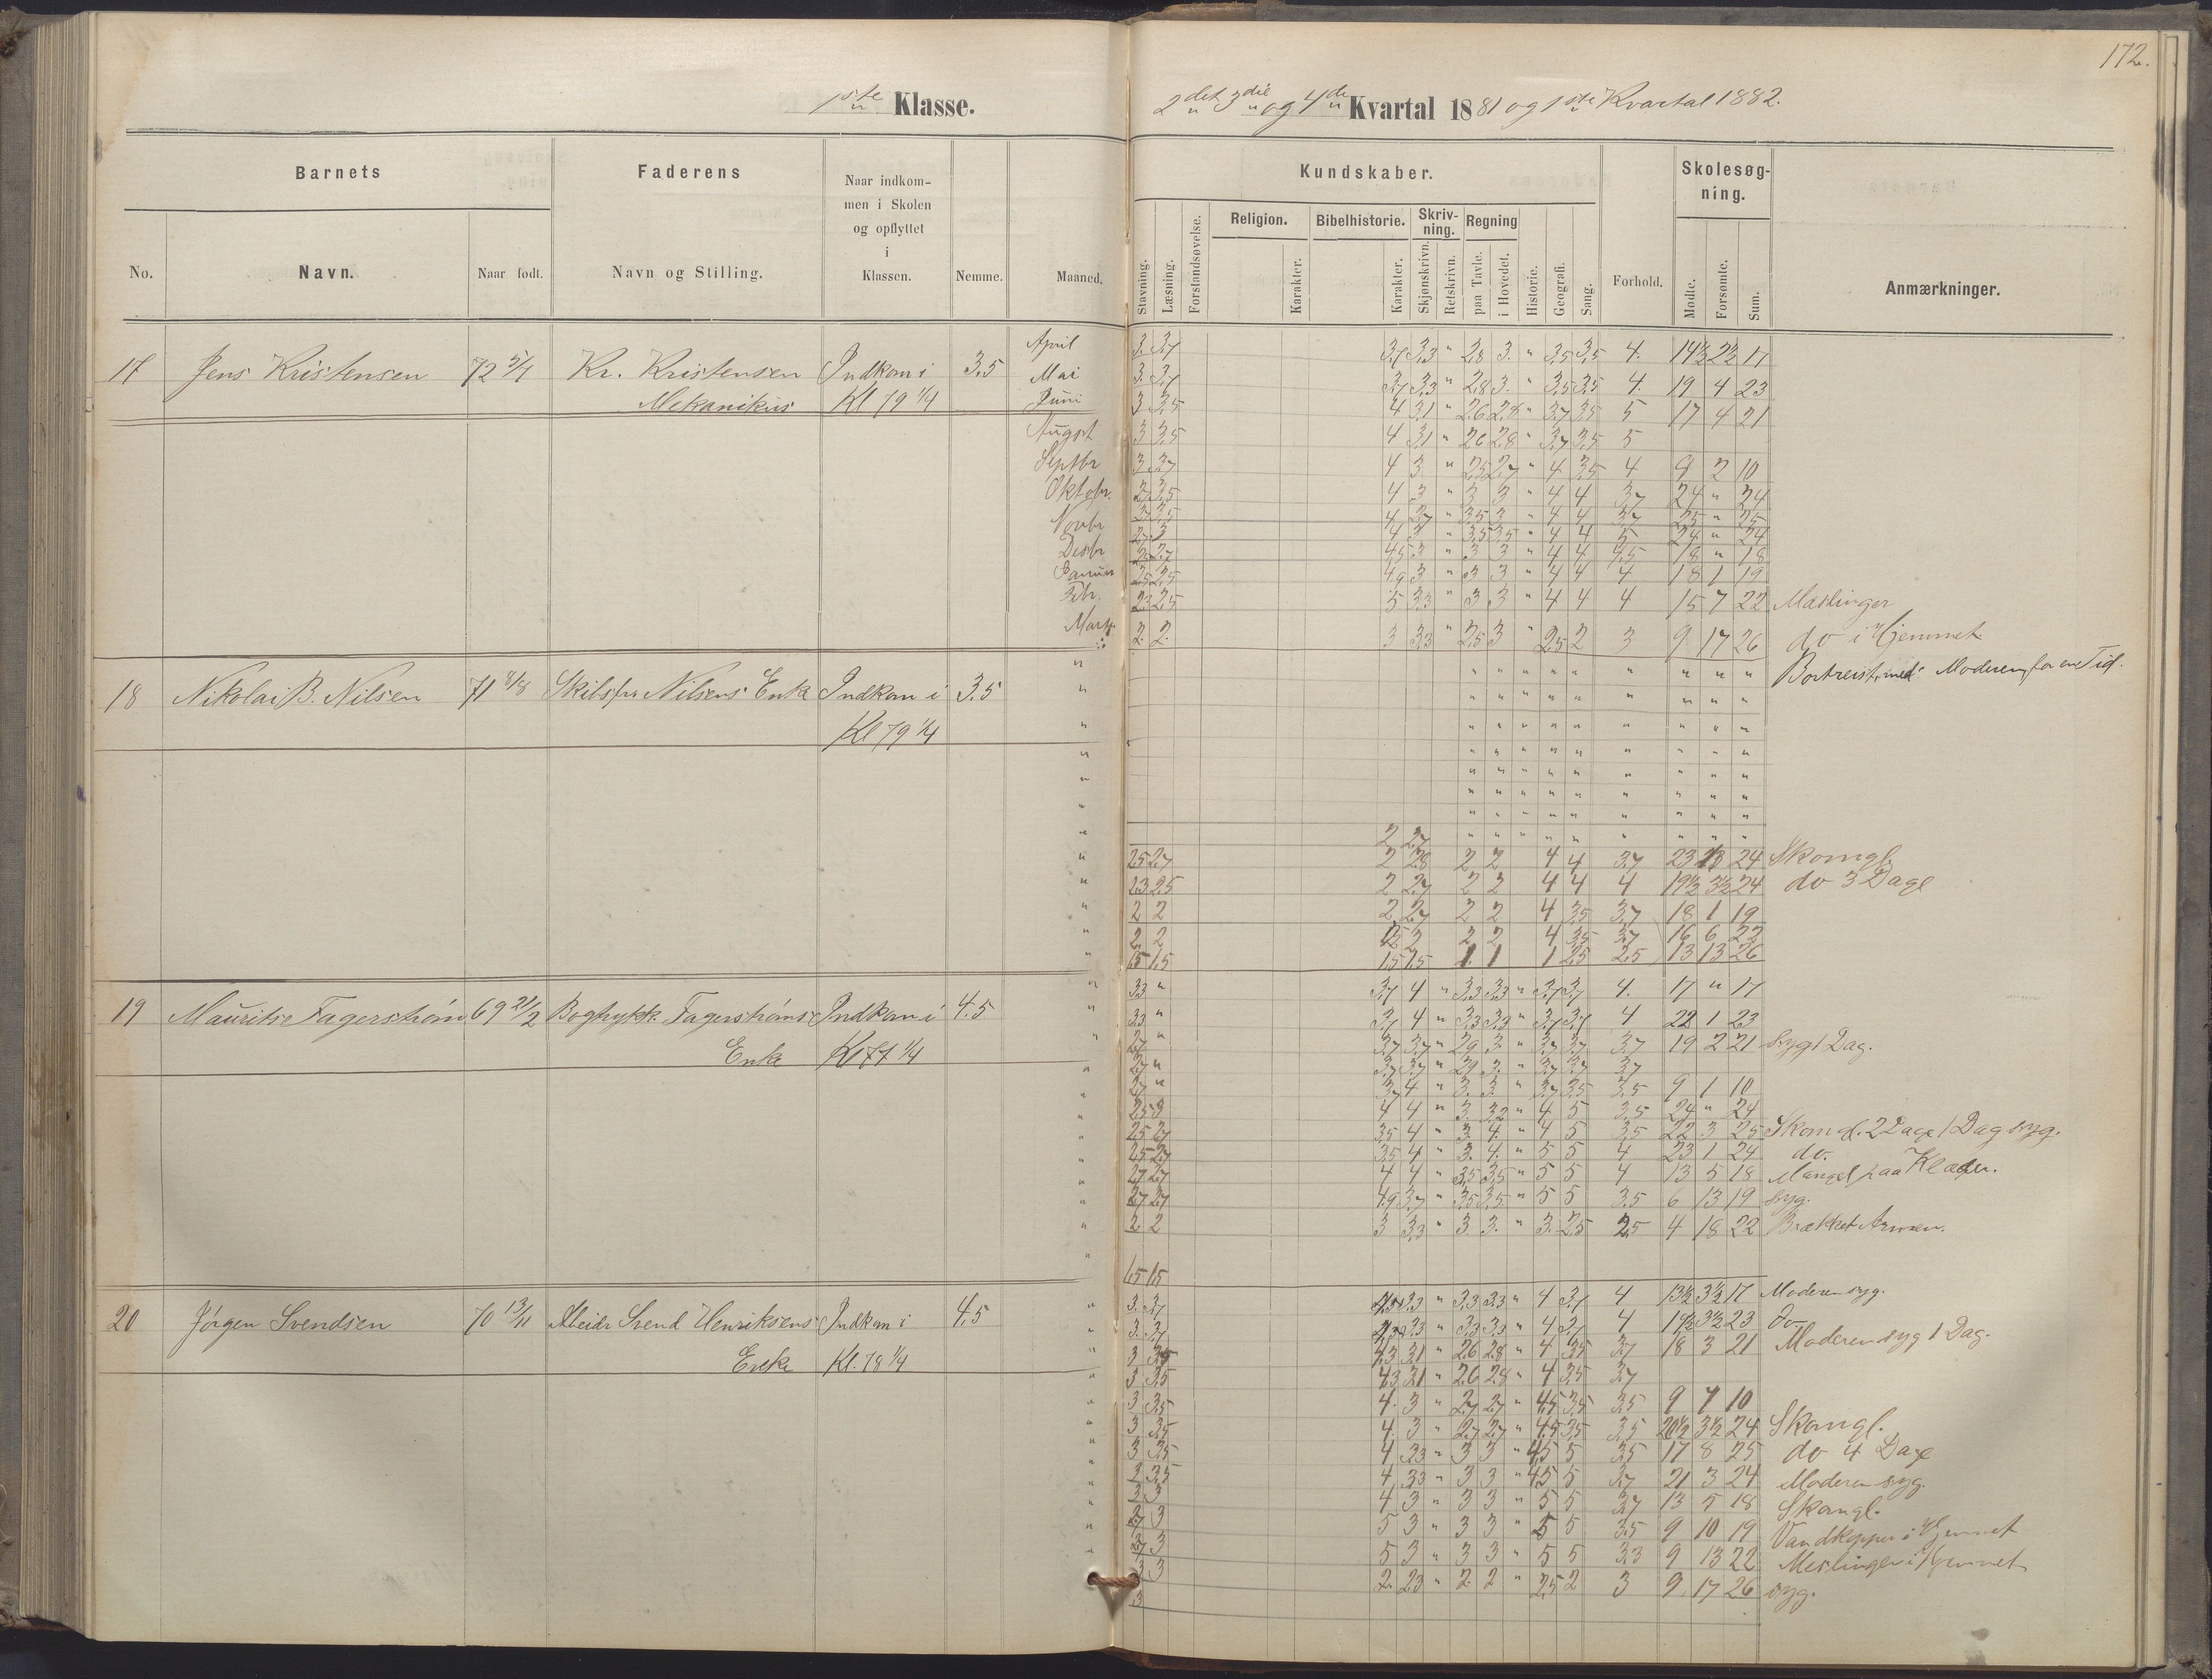 172.
1ste Klasse.
2det 3die og 4de Kvartal 1881 og 1ste Kvartal 1882.
Barnets
Faderens
Naar indkommen i Skolen og opflyttet i Klassen.
Nemme.
Maaned.
No.
Navn.
Naar født.
Navn og Stilling.
Kundskaber.
Skolesøgning.
Stavning.
Læsning.
Forstandsøvelse.
Religion.
Karakter.
Bibelhistorie.
Karakter.
Skrivning.
Skjønskrivn.
Retskrivn.
Regning
paa Tavle.
i Hovedet.
Historie.
Geografi.
Sang.
Forhold.
Mødte.
Forsømte.
Sum.
Anmærkninger.
17 Jens Kristensen 72 5/7 Kr. Kristensen Indkom i 3.5
Mekanikus Kl 79 1/4
April 3. 3,7 3,7 3,3 " 2,8 3. " 3,5 3,5 4. 14½ 2½ 17
Mai 3. 3,7 3,7 3,3 " 2,8 3. " 3,5 3,5 4. 19 4 23
Juni 3 3,5 4 3,1 " 2,6 2,8 " 3,7 3,5 5 17 4 21
Augst 3 3,5 4 3,1 " 2,6 2,8 " 3,7 3,5 5
Septbr 3 3,7 4 3 " 2,5 2,7 " 4 3,5 4 9 2 10
Oktobr. 2,7 3,5 4 3 " 3 3 " 4 4 3,7 24 " 24
Novbr 4 2,7 " 3,5 3 " 4 4 3,7 25 " 25
Desbr 4 3 " 3,5 3,5 " 4 4 5 24 " 24
Januar 4,5 3 " 3 3 " 4 4 4,5 18 " 18
Febr. 2,5 2,5 4,9 3 " 3 3 " 4 4 4 18 1 19
2,3 2,5 5 3,3 " 3 3 " 4 4 4 15 7 22 Mæslinger
Marts. 2. 2. 3 3,3 " 2,5 3 " 2,5 2 3 9 17 26 do i Hjemmet
Bortreist med Moderen for en Tid.
18 Nikolai B. Nilsen 71 8/8 Skibsfr Nilsens Enke Indkom i 3.5
Kl 79 1/4
2 2,7
2,5 2,7 2 2,8 2 2 4 4 3,7 23 24 Skomgl.
2,3 2,5 2 2,7 2 2 4 4 4 19½ 3½ 24 do 3 Dage
2 2 2 2,7 2 2 4 3,5 3,7 18 1 19
2 2 2 2 2 4 3,5 3,7 16 6 22
1,5 1,5 1,5 1,5 1. 1 1 2,5 2,5 13 13 26
19 Mauritse Fagerstrøm 69 21/2 Bogtrykk. Fagerstrøms Indkom i 4.5
Enke Kl 77 1/4
3,3 " 3,7 4 " 3,3 3,3 " 3,7 3,7 4. 17 " 17
3,3 " 3,7 4 " 3,3 3,3 " 3,7 3,7 4 22 1 23
2,7 " 3,7 3,7 " 2,9 3. " 3,7 3,7 3,7 19 2 21 syg 1 Dag.
2,7 " 3,7 3,7 " 2,9 3. " 3,7 3,7 3,7
2,7 " 3,7 4 " 3. 3. " 3,7 3,5 3,5 9 1 10
2,5 3 4 4 " 3. 3,2 " 4 5 3,5 24 " 24
2,5 2,7 3,5 4 " 3. 4. " 4 5 3,5 22 3 25 Skomgl. 2 Dage 1 Dag syg.
2,5 2,7 3,5 4 " 3. 4. " 5 5 4 23 1 24 do.
2,7 2,7 4 4 " 3,5 3,5 " 5 5 4 13 5 18 Mangel paa Klæder.
2,7 2,7 4,9 3,7 " 3,5 3,5 " 5 5 3,5 6 13 19 syg.
2 2 3 3,3 " 3 3. " 3. 2,5 2,5 4 18 22 Brækket Armen.
1,5 1,5
20 Jørgen Svendsen 70 13/11 Abeidr Svend Henriksens Indkom i 4,5
Enke Kl. 78 1/4
3. 3,7 3,3 " 3,3 3,3 " 4 3,7 4 13½ 3½ 17 Moderen syg.
3. 3,7 3,3 " 3,3 3,3 " 4 3,7 4 19½ 3½ 23 Do
3 3,5 4,3 3,1 " 2,6 2,8 " 4 3,5 3,7 18 3 21 Moderen syg 1 Dag.
3 3,5 4,3 3,1 " 2,6 2,8 " 4 3,5 3,7
3 3,5 4. 3 " 2,7 2,7 " 4,5 3,5 3,5 9 1 10
3 3,5 4 3 " 2,7 2,7 " 4,5 3,5 3,5 20½ 3½ 24 Skomgl.
3 3,5 4 3,3 " 3 3 " 4,5 5 3,5 17 8 25 do 4 Dage
3 3,5 4 3,3 " 3 3 " 4,5 5 3,7 21 3 24 Moderen syg.
3 3 4 3 " 3 3 " 5 5 3,7 13 5 18 Skomgl.
2,7 3 5 3 " 3 3 " 5 5 3,5 9 10 19 Vandkopper i Hjemmet
2,7 3 5 3 " 3 3 " 5 5 3,3 9 13 22 Meslinger i Hjemmet
3 3 2 2,3 " 2 2 " 2,5 2 3 9 17 26 syg.
3